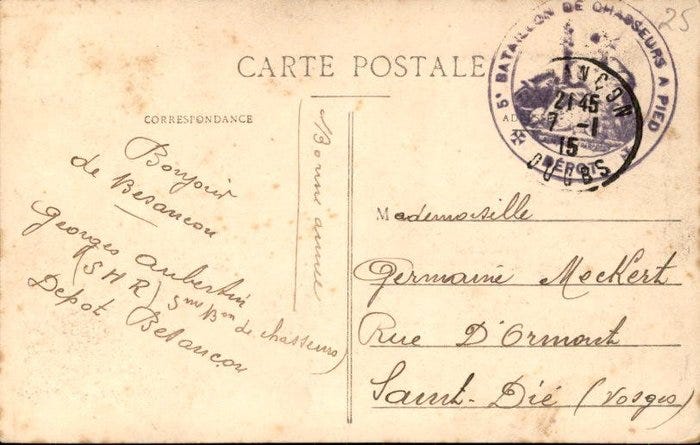 25
5e BATAILLON DE CHASSEURS A PIED
DÉPOT
21 45
7 -1
15
DOUBS
CARTE POSTALE
CORRESPONDANCE
Bonjour
de Besancon
Georges Aubertin
(SHR) 5me Bon de chasseurs)
Depot Besancon
Bonne année
Mademoiselle
Germaine Meckert
Rue D'Ormont
Saint-Dié (Vosges)